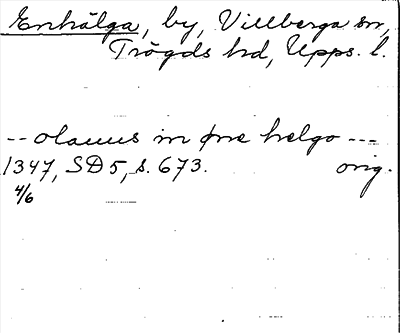 Enhälga, by, Villberga sn,
Trögds hd, Upps. l.
-- olauus in øne helgo ---
1347, SD5, s. 673. orig.
4/6